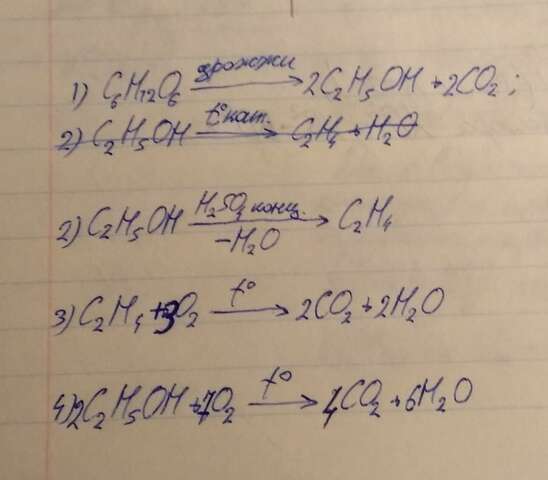 1) C₆H₁₂O₆ —дрожжи→ 2C₂H₅OH + 2CO₂ ;
2) C₂H₅OH —t° кат.→ C₂H₄ + H₂O
2) C₂H₅OH —H₂SO₄ конц. / −H₂O→ C₂H₄
3) C₂H₄ + 3O₂ —t°→ 2CO₂ + 2H₂O
4) 2C₂H₅OH + 7O₂ —t°→ 4CO₂ + 6H₂O